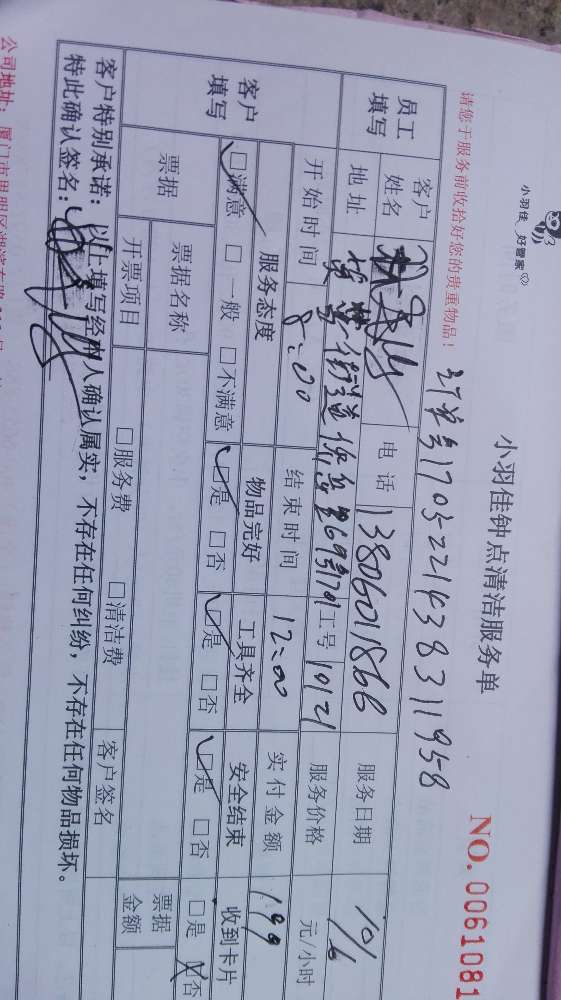 小羽佳 好管家
小羽佳钟点清洁服务单
NO. 0061081
请您于服务前收拾好您的贵重物品!
订单号1705221438311958
员工填写 客户姓名 电话 13806011866 服务日期 10/6
地址 街道 69号701 工号 10121 服务价格 元/小时
开始时间 8:00 结束时间 12:00 实付金额 199
客户填写 服务态度 物品完好 工具齐全 安全结束 收到卡片
☑满意 □一般 □不满意 ☑是 □否 ☑是 □否 ☑是 □否 □是 ☒否
票据 票据名称 票据金额
开票项目 □服务费 □清洁费 客户签名
客户特别承诺:以上填写经本人确认属实,不存在任何纠纷,不存在任何物品损坏。
特此确认签名:
公司地址:厦门市思明区湖滨东路